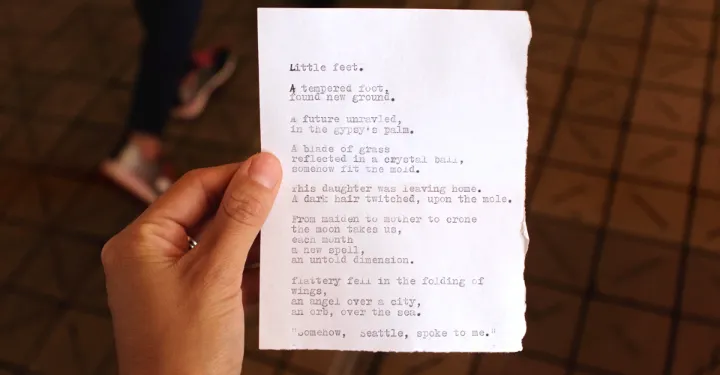 Little feet.
A tempered foot,
found new ground.
A future unravled,
in the gypsy's palm.
A blade of grass
reflected in a crystal ball,
somehow fit the mold.
This daughter was leaving home.
A dark hair twitched, upon the mole.
From maiden to mother to crone
the moon takes us,
each month
a new spell,
an untold dimension.
flattery fell in the folding of
wings,
an angel over a city,
an orb, over the sea.
"Somehow, Seattle, spoke to me."